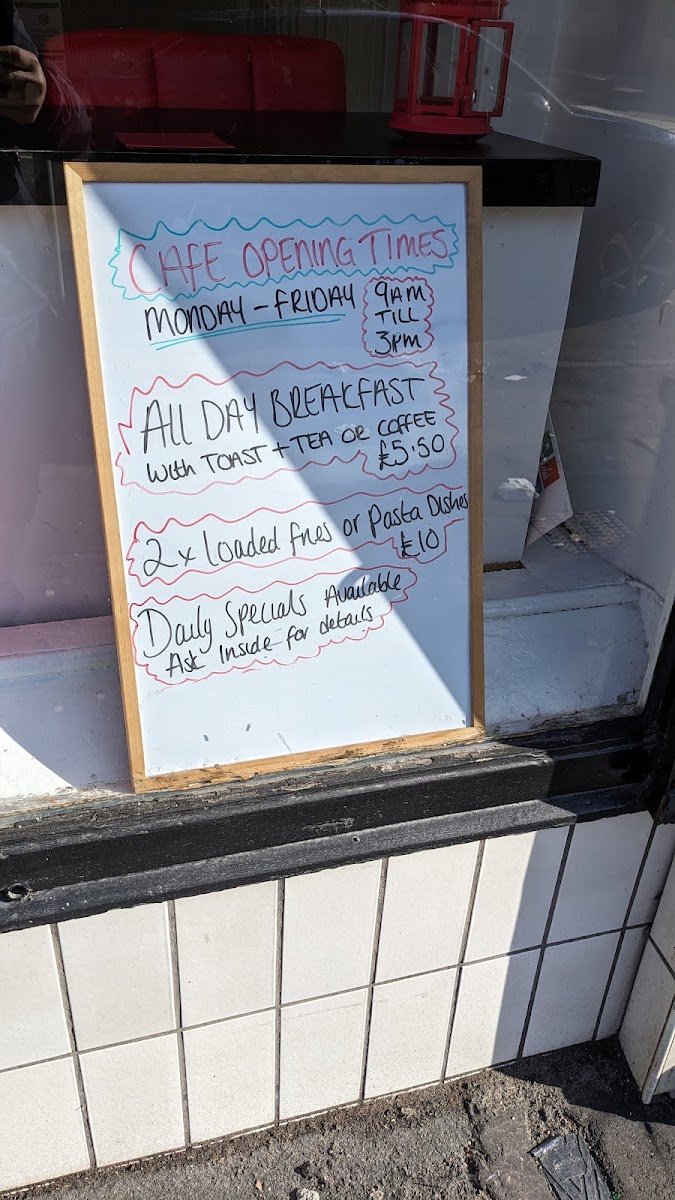 CAFE OPENING TIMES
MONDAY - FRIDAY 9AM
TILL
3PM
ALL DAY BREAKFAST
With TOAST + TEA OR COFFEE
£5.50
2x Loaded fries or Pasta Dishes
£10
Daily Specials Available
Ask Inside for details